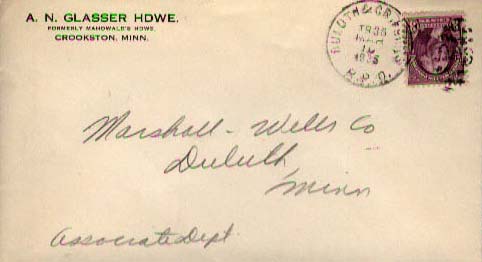 A. N. GLASSER HDWE.
FORMERLY MAHOWALD'S HDWE.
CROOKSTON, MINN.
DULUTH &
TR35
1935
R.P.O.
Marshall-Wells Co
Duluth
Minn
Associate Dept.